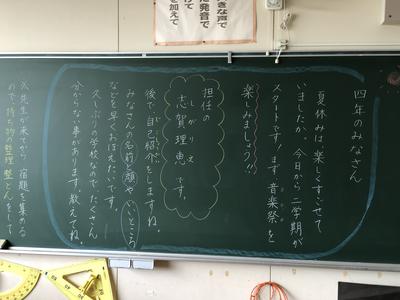 きな声で
た発音で
けて
を加えて
四年のみなさん
夏休みは楽しくすごせて
いましたか。今日から二学期が
スタートです!まず、音楽祭を
楽しみましょう!!
担任の
しがりえ
志賀理恵です。
後で自己紹介をしますね。
みなさんの名前と顔や、いいところ
などを早くおぼえたいです。
久しぶりの学校なので、たくさん
分からない事があります。教えてね。
※先生が来てから宿題を集める
ので、持ち物の整理整とんをして